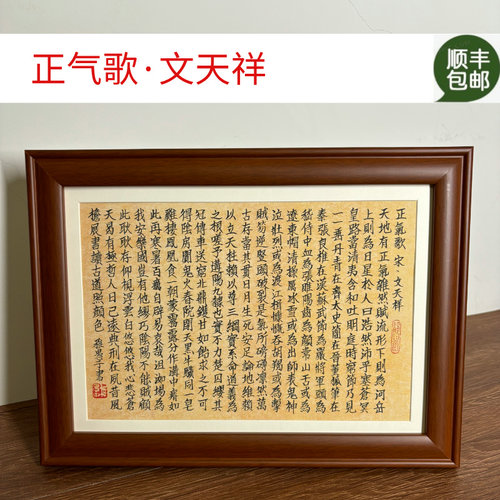 正气歌·文天祥
顺丰
包邮
正氣歌 宋·文天祥
天地有正氣雜然賦流形下則為河岳
上則為日星於人曰浩然沛乎塞蒼冥
皇路當清夷含和吐明庭時窮節乃見
一一垂丹青在齊太史簡在晉董狐筆在
秦張良椎在漢蘇武節為嚴將軍頭為
嵇侍中血為張睢陽齒為顏常山舌或為
遼東帽清操厲冰雪或為出師表鬼神
泣壯烈或為渡江楫慷慨吞胡羯或為擊
賊笏逆豎頭破裂是氣所磅礴凜然萬
古存當其貫日月生死安足論地維賴
以立天柱賴以尊三綱實系命道義為
之根嗟予遘陽九隸也實不力楚囚纓其
冠傳車送窮北鼎鑊甘如飴求之不可
得陰房闃鬼火春院閟天黑牛驥同一皂
雞棲鳳凰食一朝蒙霧露分作溝中瘠如
此再寒暑百癘自辟易哀哉沮洳場為
我安樂國豈有他繆巧陰陽不能賊顧
此耿耿存仰視浮雲白悠悠我心悲蒼
天曷有極哲人日已遠典刑在夙昔風
檐展書讀古道照顏色 書